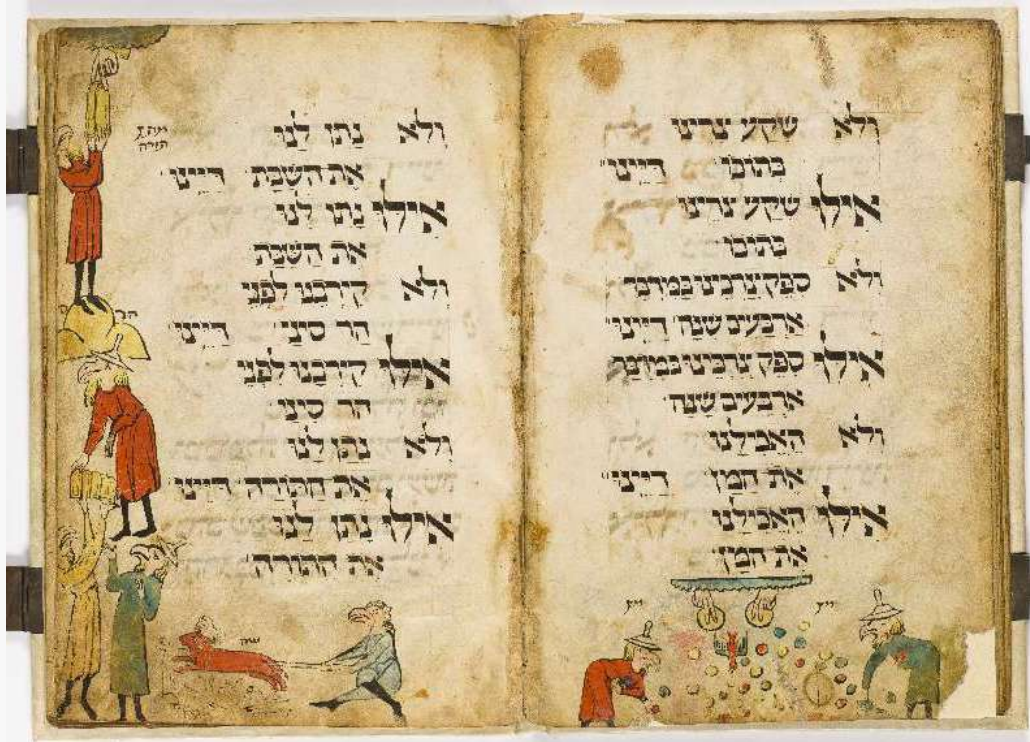 ולא שקע צרינו
בתוכו דיינו
אילו שקע צרינו
בתוכו
ולא ספק צרכינו במדבר
ארבעים שנה דיינו
אילו ספק צרכינו במדבר
ארבעים שנה
ולא האכילנו
את המן דיינו
אילו האכילנו
את המן
ולא נתן לנו
את השבת דיינו
אילו נתן לנו
את השבת
ולא קירבנו לפני
הר סיני דיינו
אילו קירבנו לפני
הר סיני
ולא נתן לנו
את התורה דיינו
אילו נתן לנו
את התורה
תורה
הר